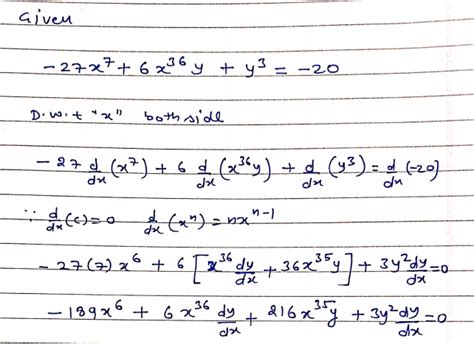 Given
-27x⁷ + 6x³⁶y + y³ = -20
D.w.t "x" both side
-27 d/dx (x⁷) + 6 d/dx (x³⁶y) + d/dx (y³) = d/dx (-20)
∵ d/dx (c) = 0 d/dx (xⁿ) = nxⁿ⁻¹
-27(7)x⁶ + 6[x³⁶ dy/dx + 36x³⁵y] + 3y² dy/dx = 0
-189x⁶ + 6x³⁶ dy/dx + 216x³⁵y + 3y² dy/dx = 0